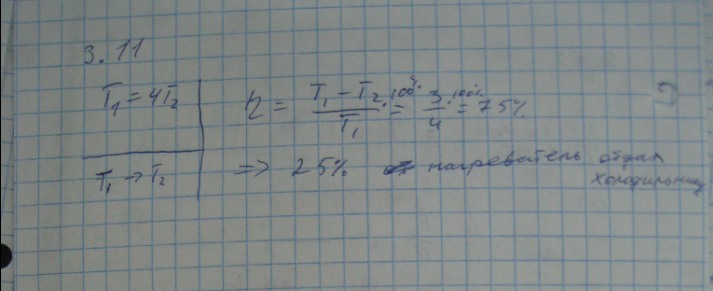 3.11
T₁ = 4T₂
η = (T₁ - T₂)/T₁ · 100% = 3/4 · 100% = 75%
T₁ → T₂
=> 25% нагреватель отдал
холодильнику